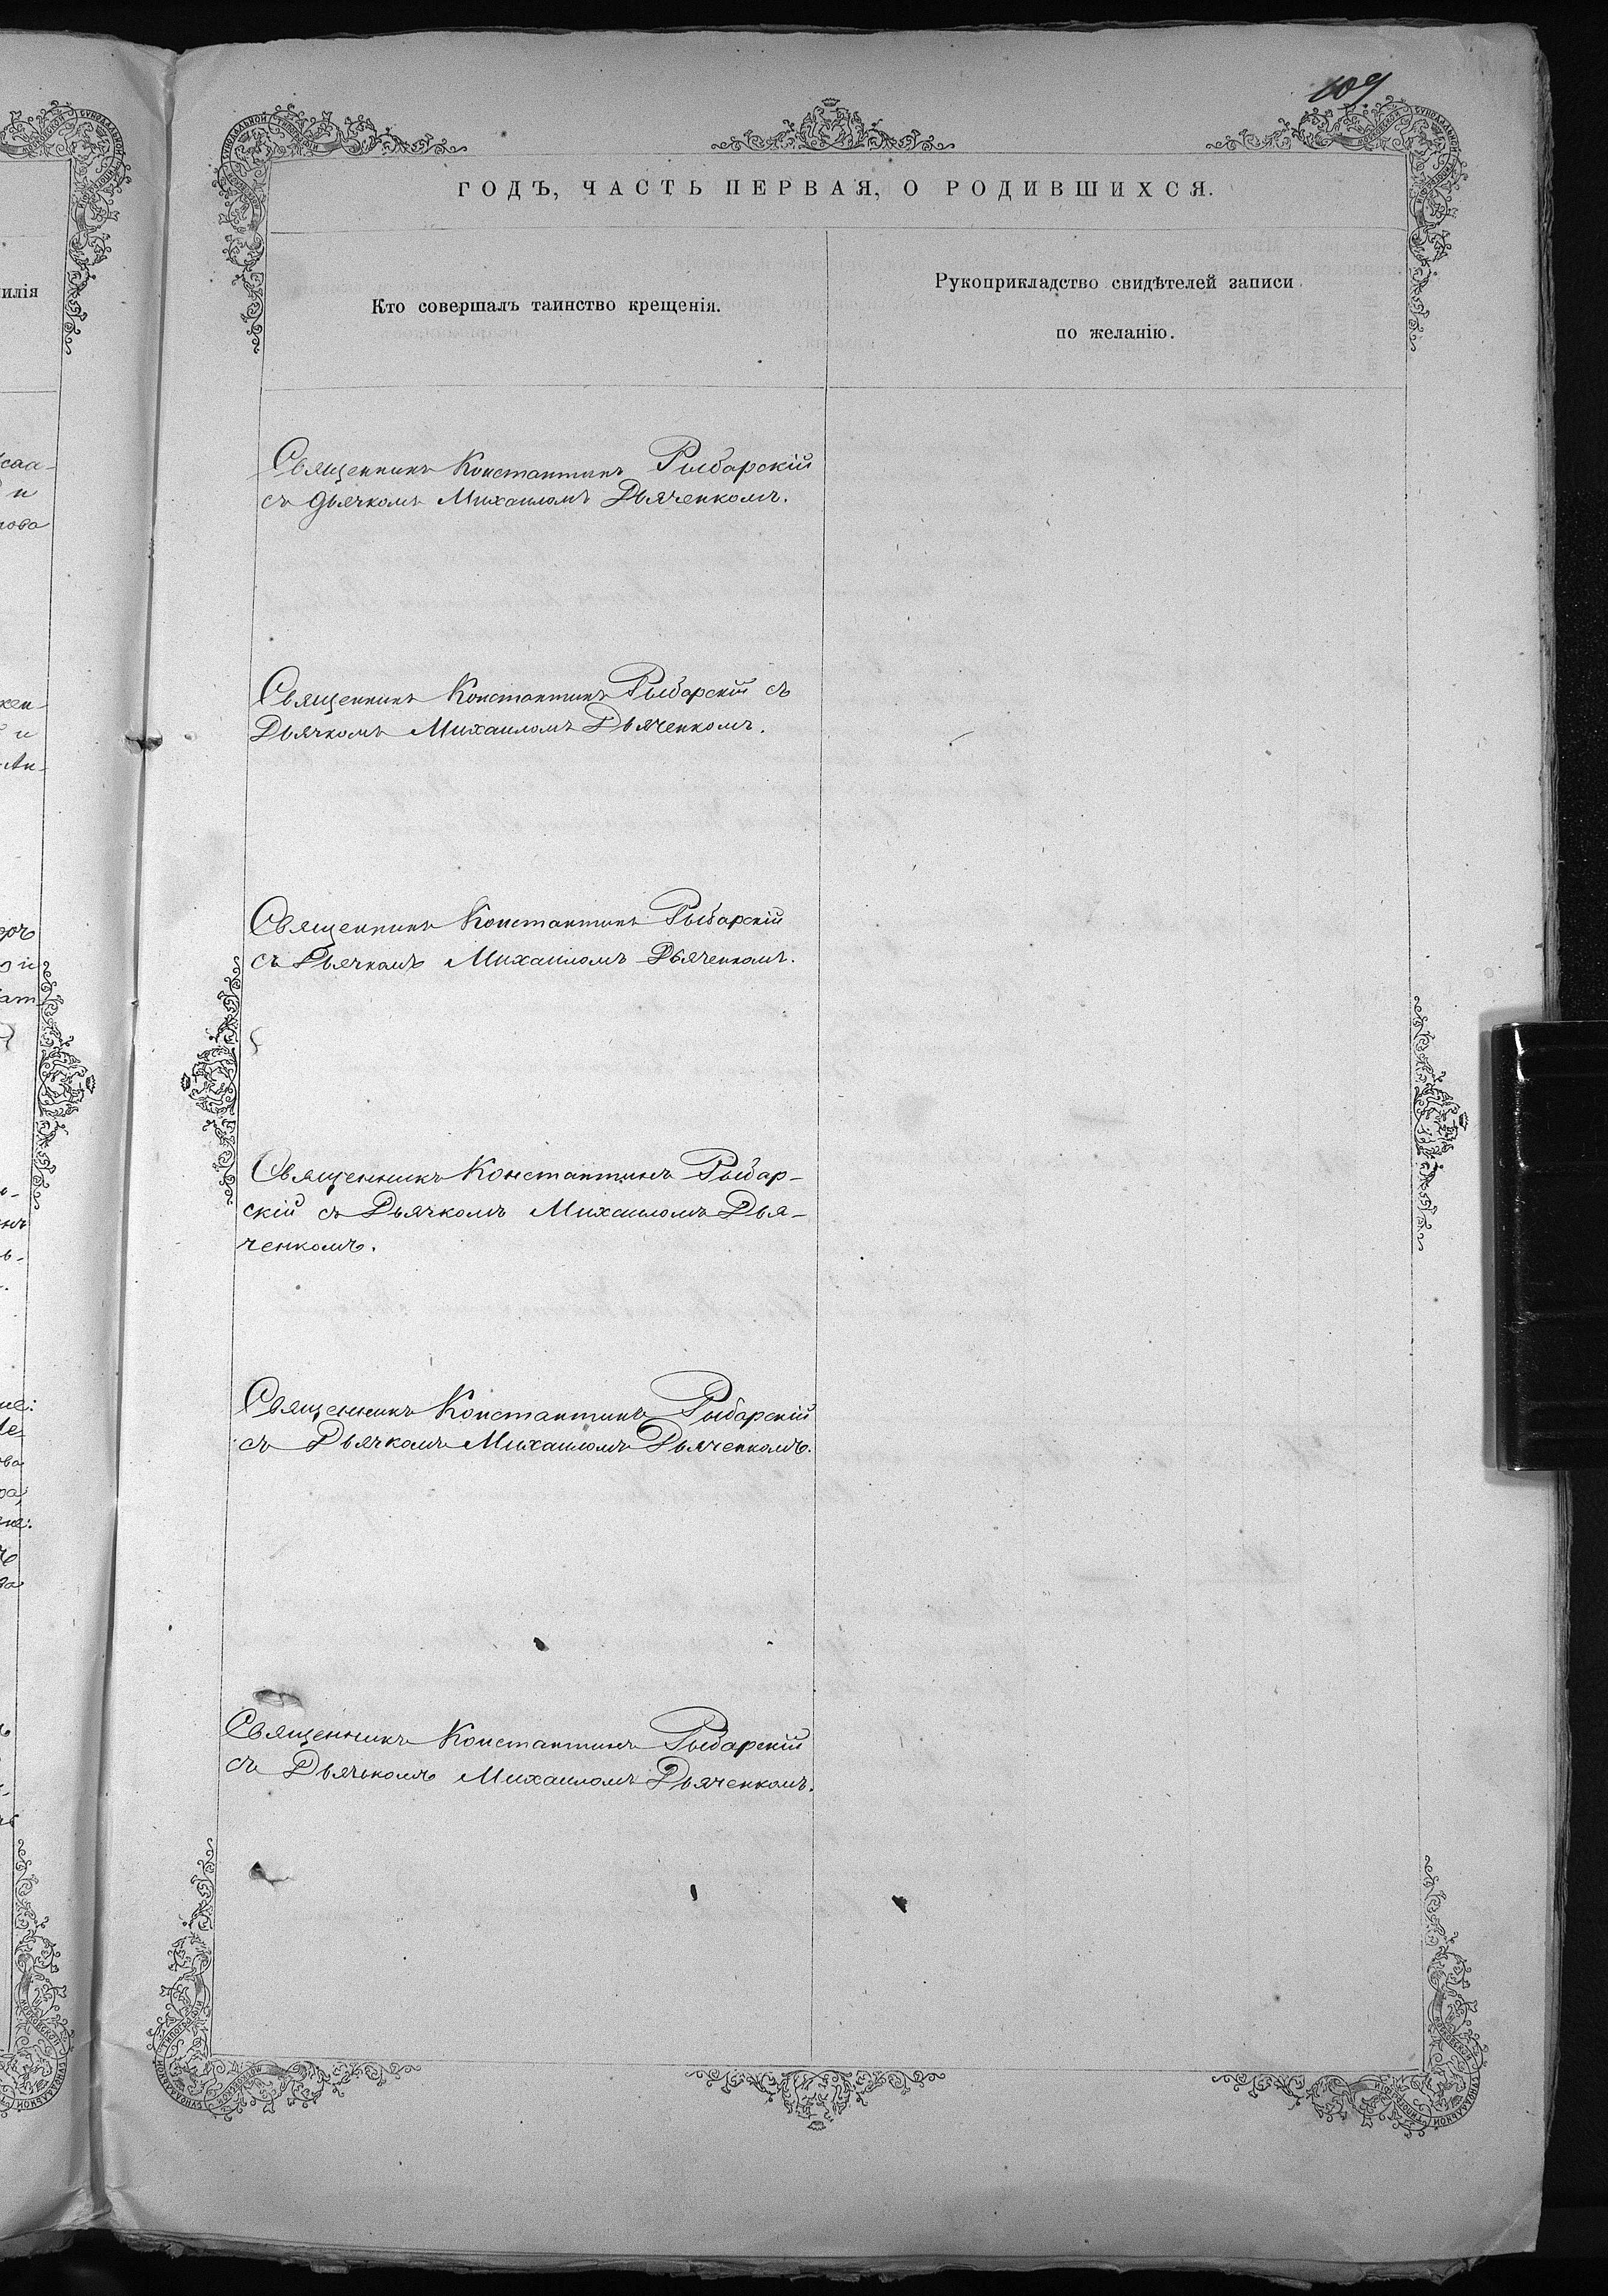 109
ГОДЪ, ЧАСТЬ ПЕРВАЯ, О РОДИВШИХСЯ.
Кто совершалъ таинство крещенія.
Рукоприкладство свидѣтелей записи
по желанію.
Священникъ Константинъ Рыбарскій
съ дьячкомъ Михаиломъ Дьяченкомъ.
Священникъ Константинъ Рыбарскій съ
Дьячкомъ Михаиломъ Дьяченкомъ.
Священникъ Константинъ Рыбарскій
съ Дьячкомъ Михаиломъ Дьяченкомъ.
Священникъ Константинъ Рыбар-
скій съ Дьячкомъ Михаиломъ Дья-
ченкомъ.
Священникъ Константинъ Рыбарскій
съ Дьячкомъ Михаиломъ Дьяченкомъ.
Священникъ Константинъ Рыбарскій
съ Дьячькомъ Михаиломъ Дьяченкомъ.